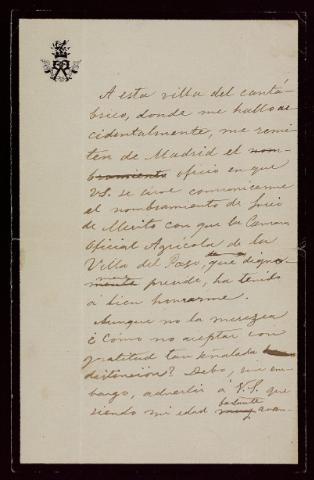 A esta villa del cantá-
brico, donde me hallo ac-
cidentalmente, me remi-
ten de Madrid el nom-
bramiento oficio en que
V.S. se sirve comunicarme
el nombramiento de Socio
de Mérito con que la Cámara
Oficial Agrícola de la
Villa del Paso, que digna-
mente preside, ha tenido
á bien honrarme.
Aunque no la merezca
¿Cómo no aceptar con
gratitud tan señalada
distinción? Debo, sin em-
bargo, advertir á V.S. que
siendo mi edad bastante
muy avan-